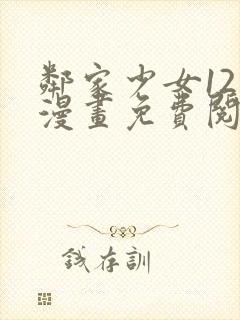 鄰家少女12
漫畫免費閱
錢存訓